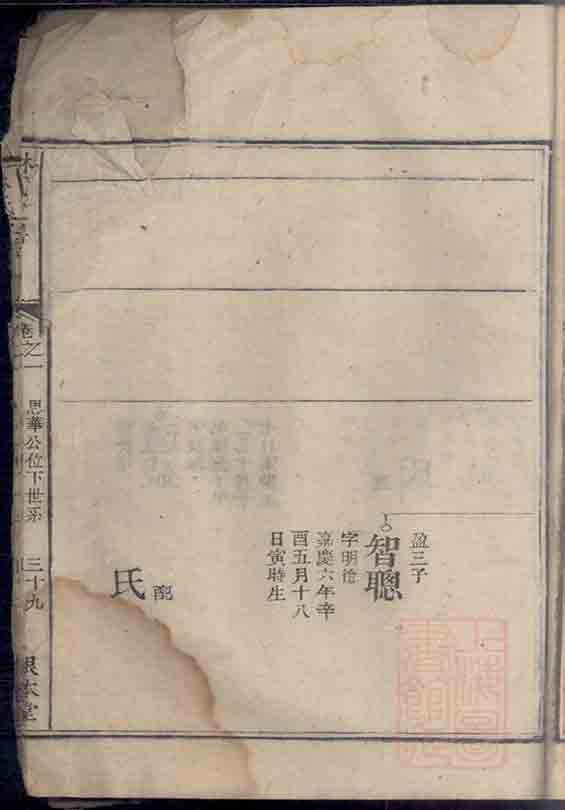 盈三子
智聰
字明
嘉慶六年辛
酉五月十八
日寅時生
配
氏
卷之一
思華公位下世系
三十九
根本堂
上海圖書館藏